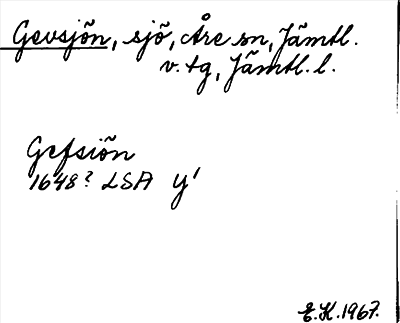 Gevsjön, sjö, Åre sn, Jämtl.
v. tg, Jämtl. l.
Gefsiön
1648? LSA y'
E.H. 1967.